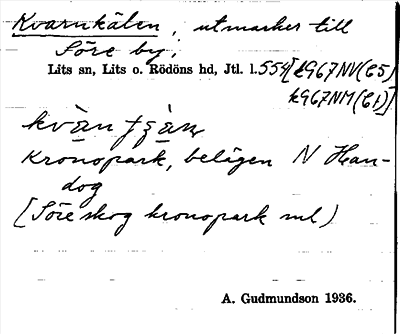 Kvarnkälen, utmarker till
Söre by,
Lits sn, Lits o. Rödöns hd, Jtl. l. 554 [£967NV(C5)
£967NM(C1)]
Kronopark, belägen N Han-
dog
[Söre skog kronopark ml)
A. Gudmundson 1936.